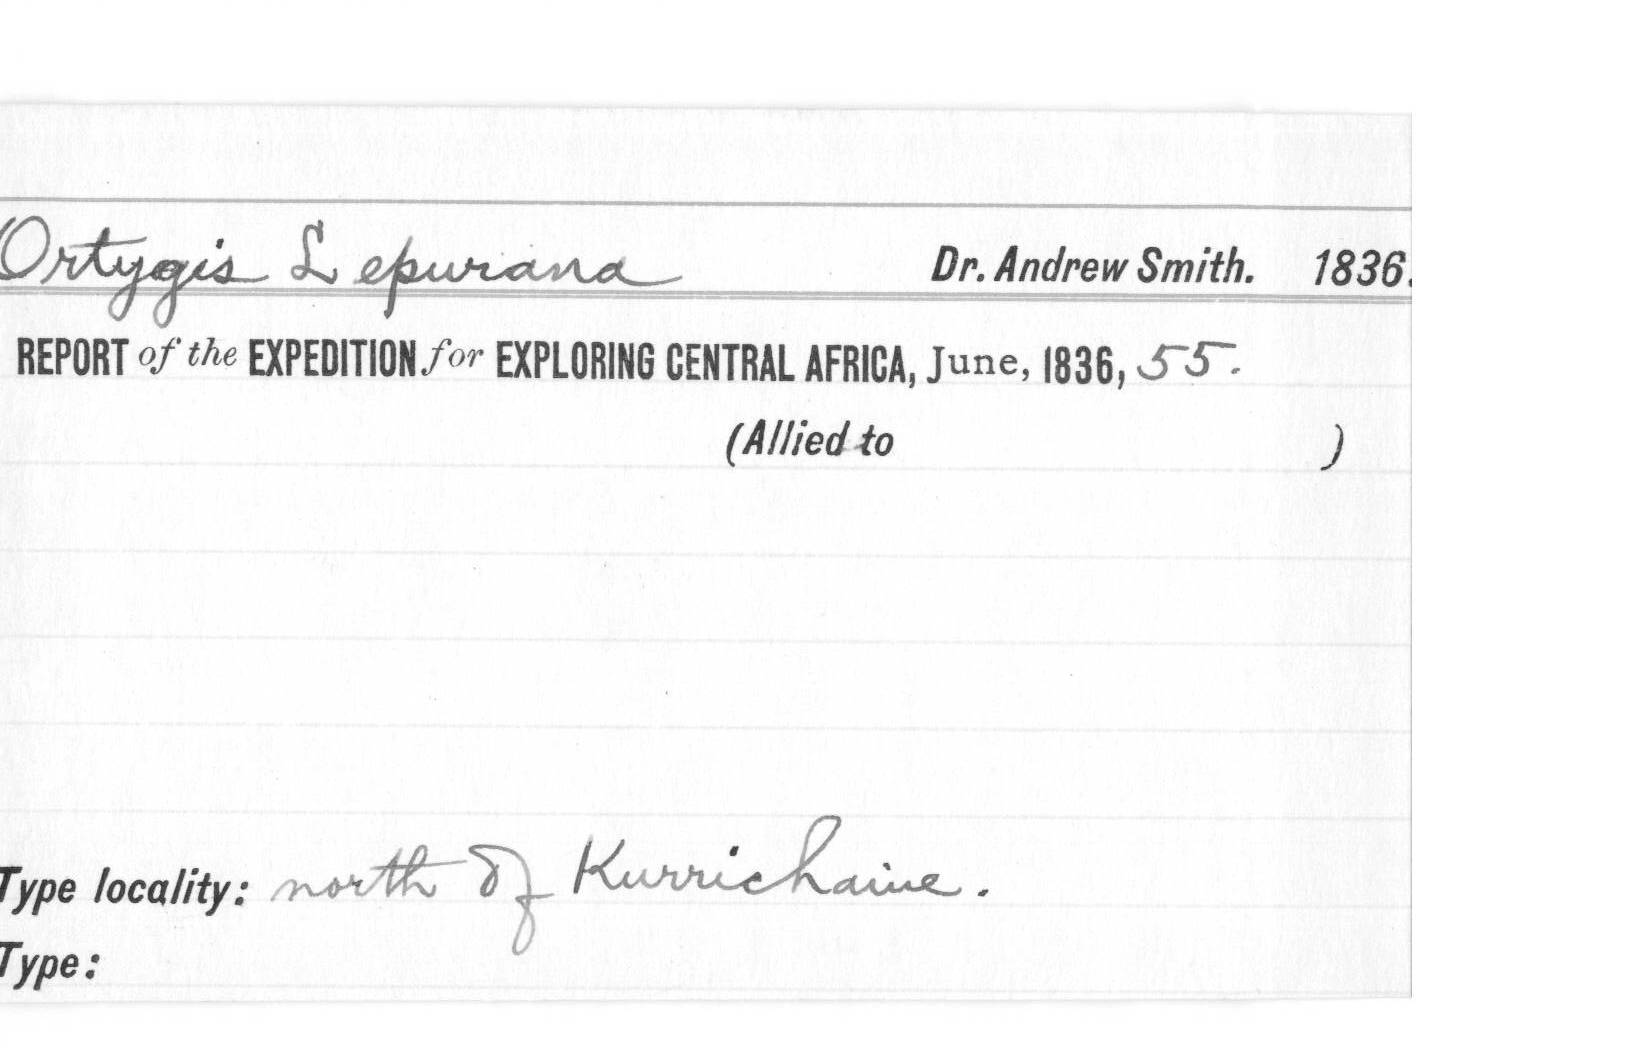 Ortygis Lepurana Dr. Andrew Smith. 1836.
REPORT of the EXPEDITION for EXPLORING CENTRAL AFRICA, June, 1836, 55.
(Allied to )
Type locality: north of Kurrichaine.
Type: